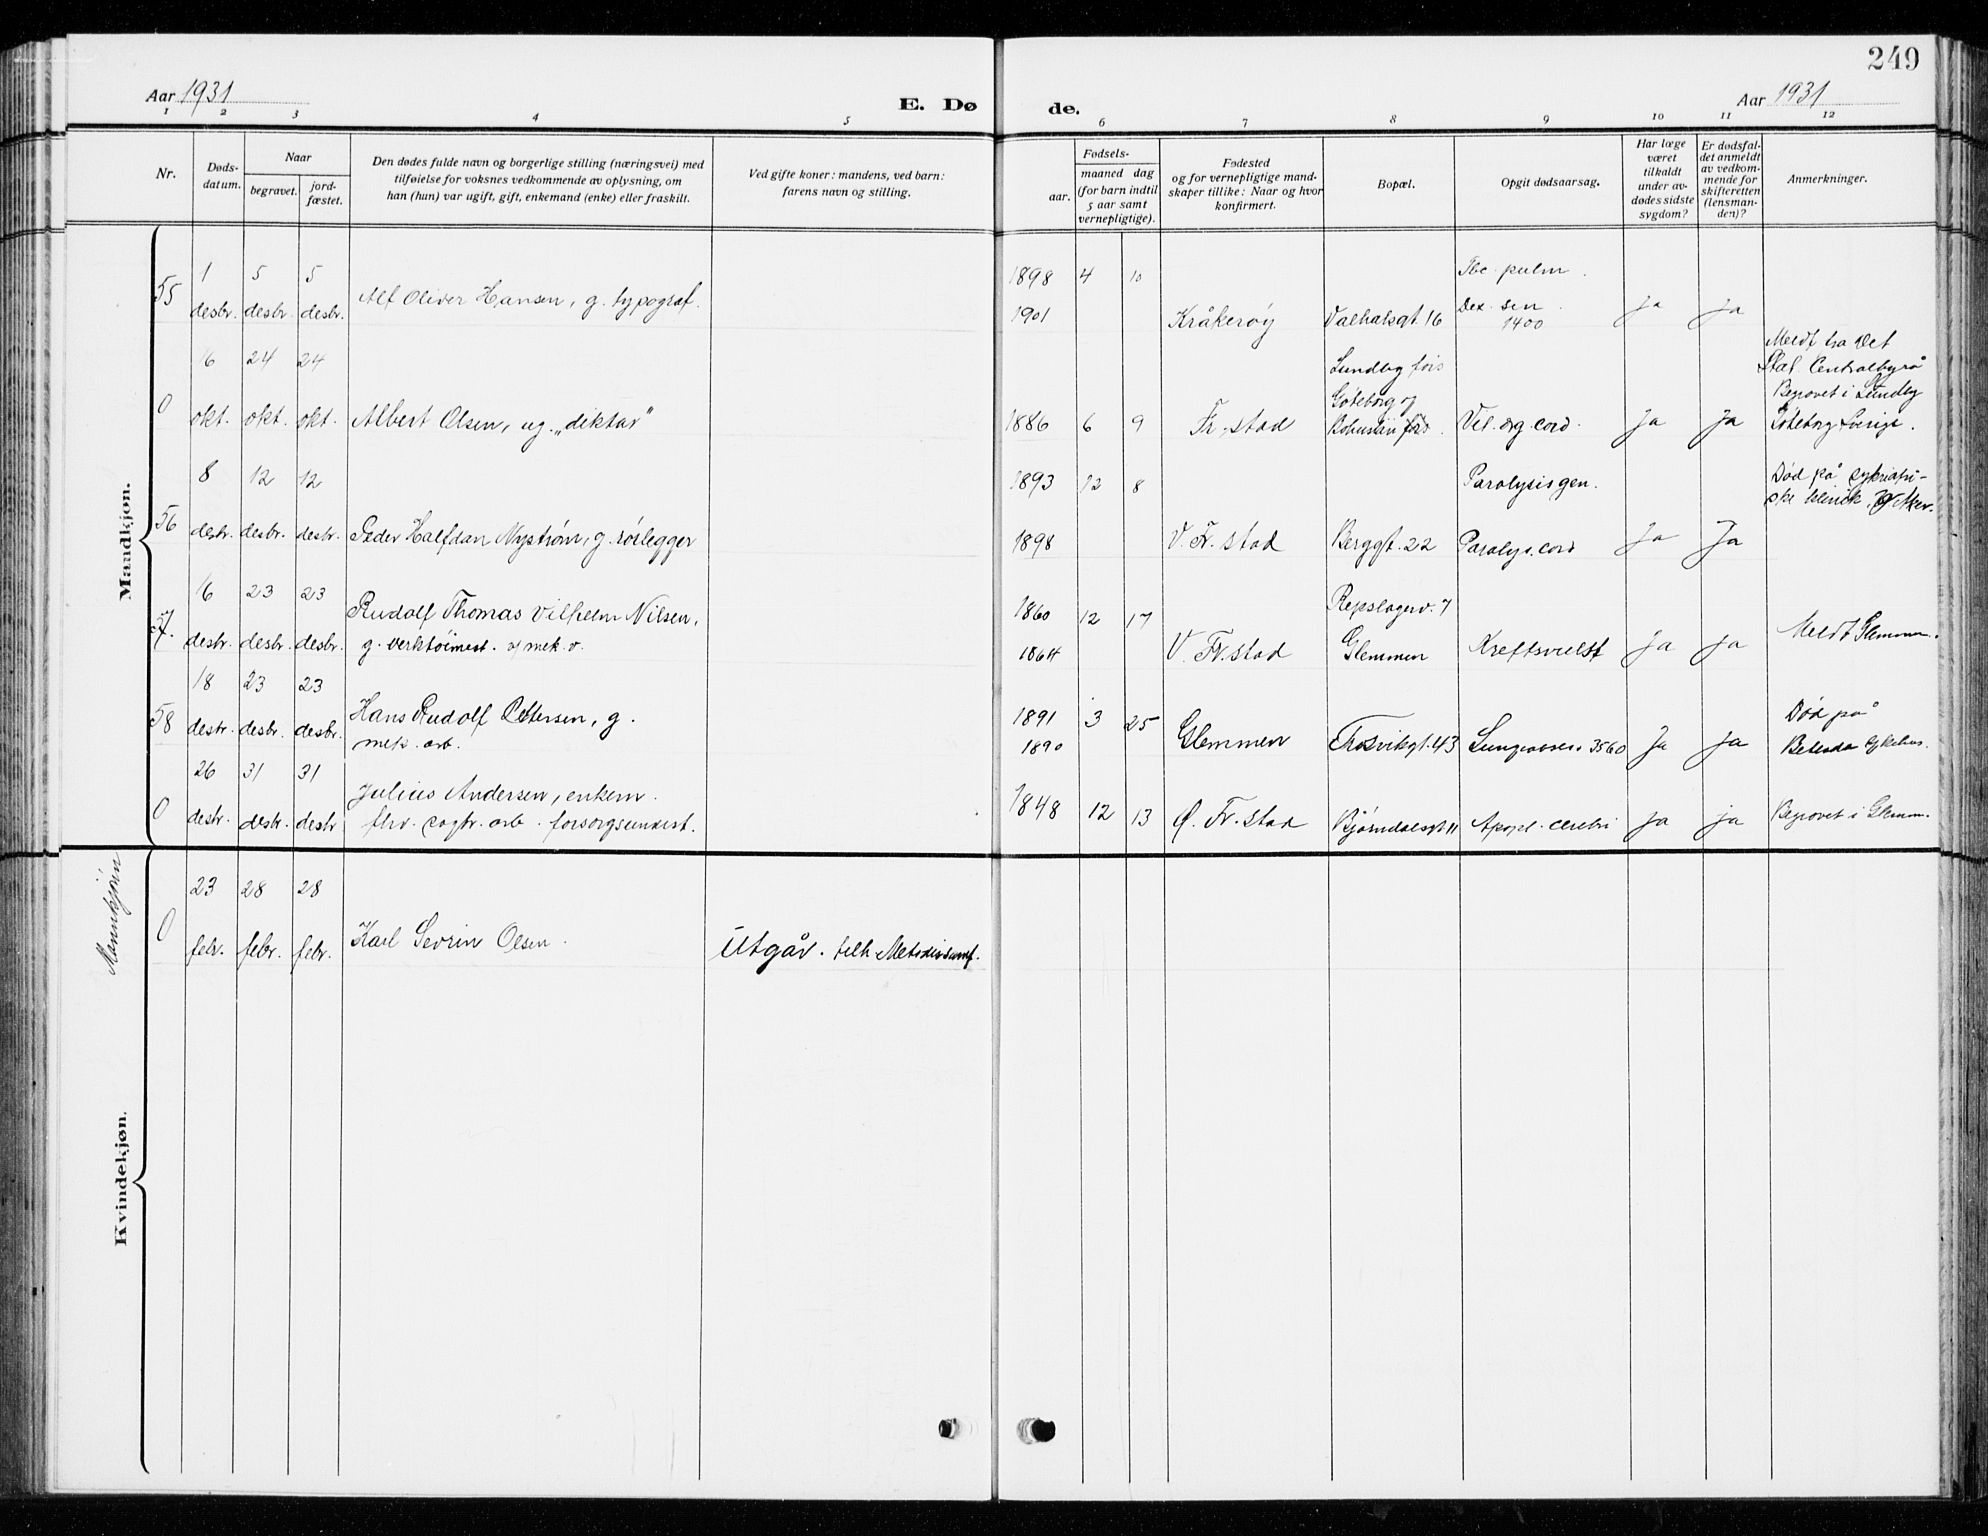 249
Aar 1931
E. Dø
de.
Aar 1931
1 2 3 4 5 6 7 8 9 10 11 12
Nr.
Døds-
datum.
Naar
begravet.
jord-
fæstet.
Den dødes fulde navn og borgerlige stilling (næringsvei) med
tilføielse for voksnes vedkommende av oplysning, om
han (hun) var ugift, gift, enkemand (enke) eller fraskilt.
Ved gifte koner: mandens, ved barn:
farens navn og stilling.
Fødsels-
aar.
maaned dag
(for barn indtil
5 aar samt
vernepligtige).
Fødested
og for vernepligtige mand-
skaper tillike: Naar og hvor
konfirmert.
Bopæl.
Opgit dødsaarsag.
Har læge
været
tilkaldt
under av-
dødes sidste
sygdom?
Er dødsfal-
det anmeldt
av vedkom-
mende for
skifteretten
(lensman-
den)?
Anmerkninger.
Mandkjøn.
1 5 5 1898 4 10 Tbc. pulm.
55 desbr. desbr. desbr. Alf Oliver Hansen, g. typograf. 1901 Kråkerøy Valhalsgt. 16 Dex. sin. 1400 Ja Ja
16 24 24 Lundby förs Meldt fra Det
Stat. Centralbyrå
Göteborg og Begrovet i Lundby
0 okt. okt. okt. Albert Olsen, ug. "diktar" 1886 6 9 Fr.stad Vit. org. cord. Ja Ja Göteborg Sverige.
8 12 12 1893 12 8 Paralysis gen. Død på
56 desbr. desbr. desbr. Peder Halfdan Nystrøm, g. rørlegger 1898 V. Fr. stad Berggt. 22 Paralys. cord Ja Ja
16 23 23 Rudolf Thomas Vilhelm Nilsen, 1860 12 17 Repslagerv. 7
57. desbr. desbr. desbr. g. verktøimest. v/ mek. v. 1864 V. Fr.stad Glemmen Kreftsvulst Ja Ja Meldt Glemmen.
18 23 23 Hans Rudolf Pettersen, g. 1891 3 25 Død på
58 desbr. desbr. desbr. mek. arb. 1890 Glemmen Trosvikgt. 43 3560 Ja Ja
26 31 31 Julius Andersen, enkem. 1848
0 desbr. desbr. desbr forsorgsunderst. 12 13 Ø. Fr. stad Bjørndalsgt 11 Apopl. cerebri Ja ja Begrovet i Glemm.
Mannkjønn
23 28 28
0 febr. febr. febr. Karl Sevrin Olsen. Utgår. tilh Metodistsamf.
Kvindekjøn.